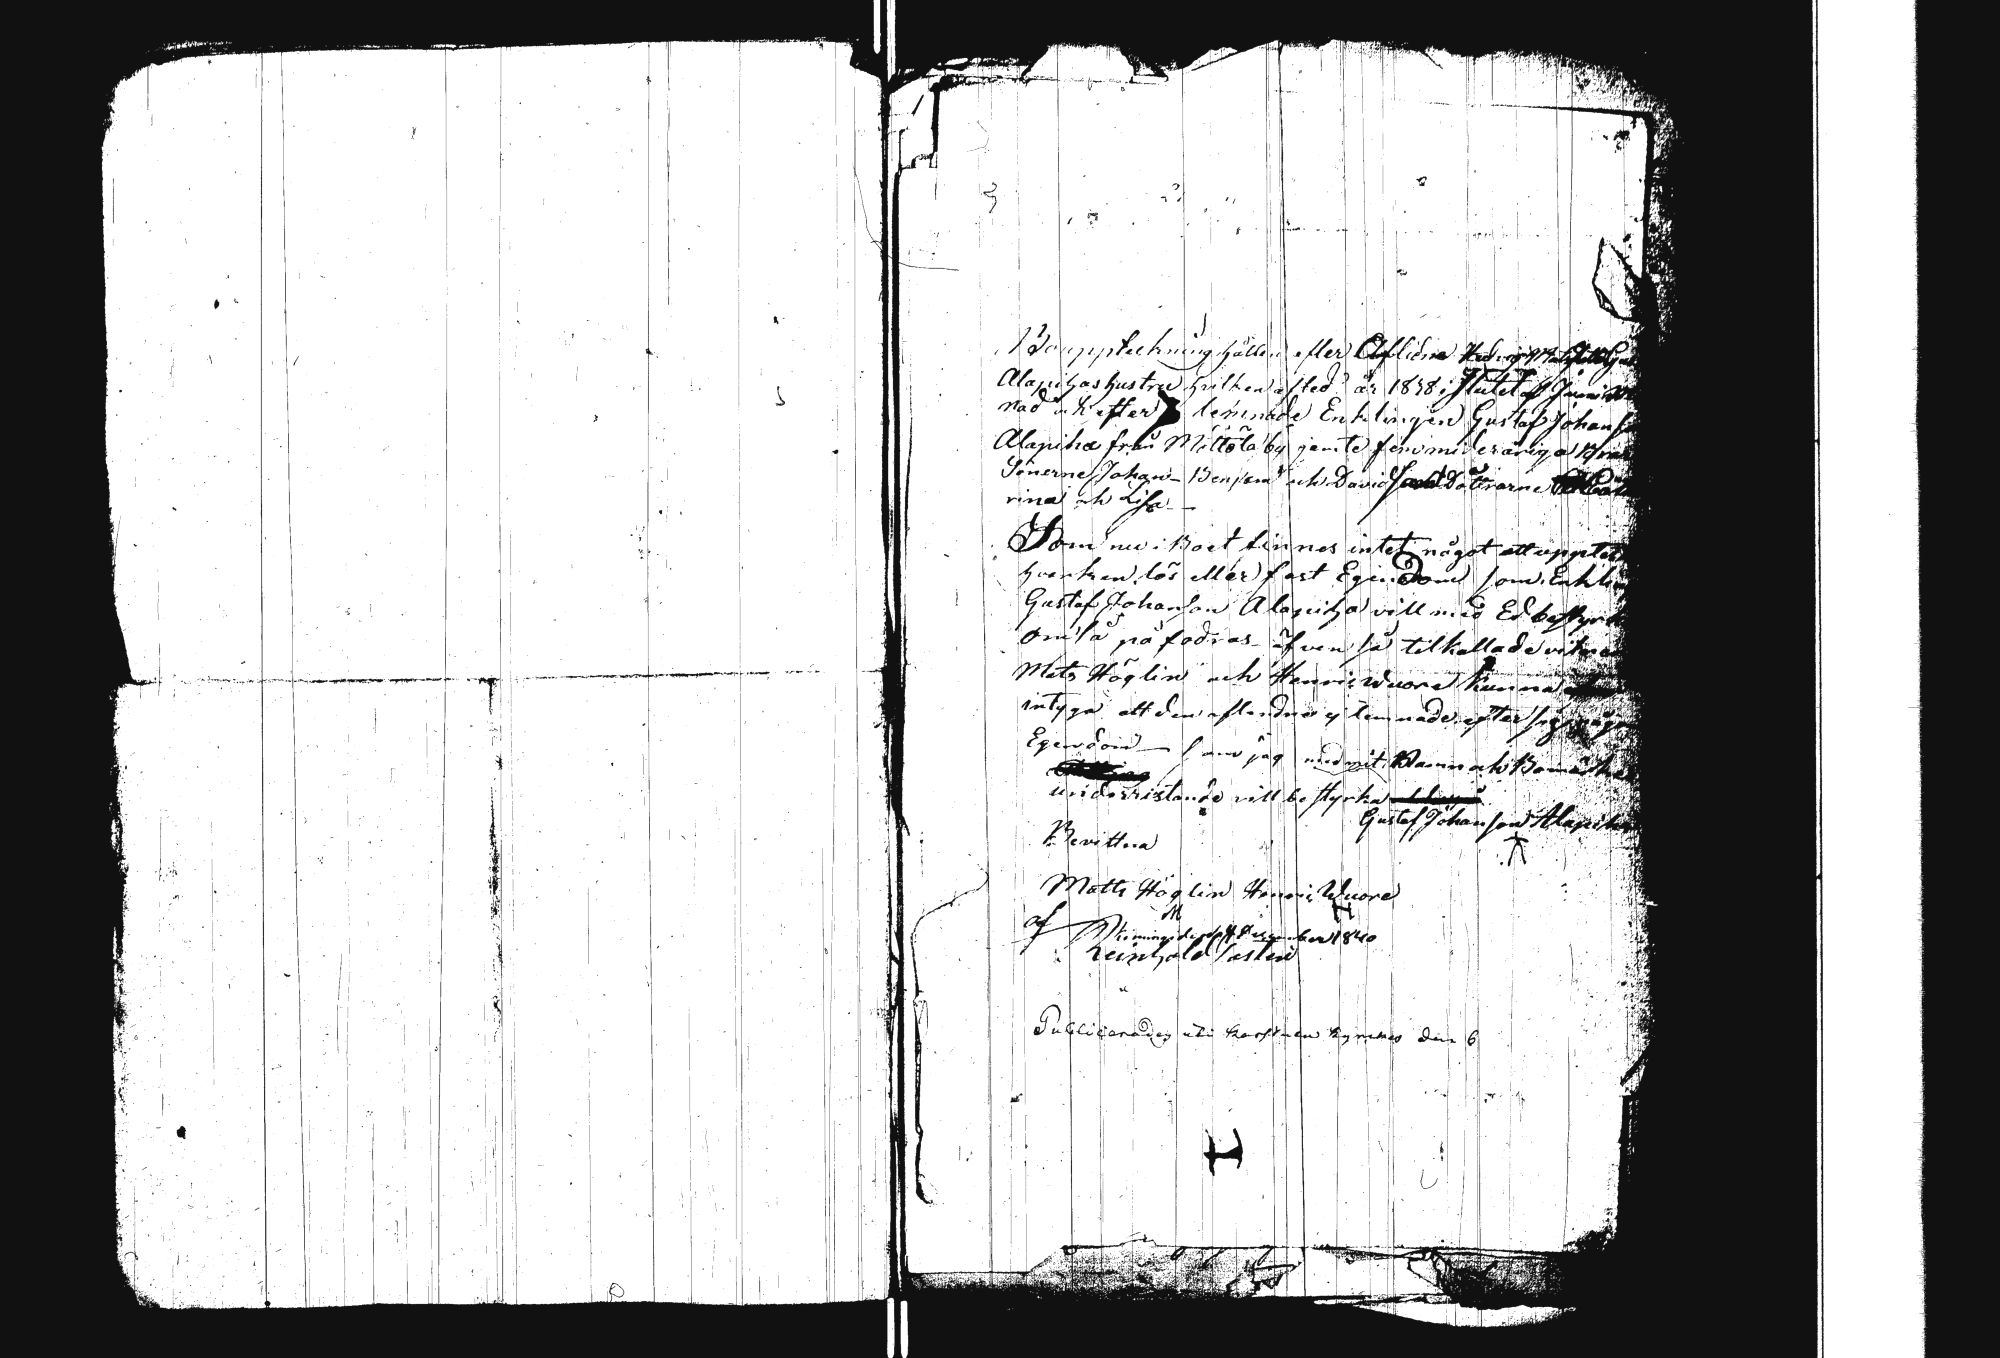 Bouppteckning hållen efter Aflidne Hedvig
Alapihas hustru hvilken afled år 1838 i slutet af Juni
nad och efter lemnade Enklingen Gustaf Johans
Alapiha från Mottöla by jemte fem minderåriga Bra
Sönerne Johan - Benjam och David samt Döttrarne
rina och Lisa -
Som nu i Boet finnes intet något att upptek
hvarken lös eller fast Egendom som Enkling
Gustaf Johanson Alapiha vill med Ed bestyrk
om så på fodras - äfven så tilkallade vitnen
Mats Höglin och Henric Wuore kunna
intyga att den aflidne ej lemnade efter sig någon
Egendom - som jag med mit Namn och Bomärke
underristande vill bestyrka
Gustaf Johanson Alapiha
Bevittna
Matts Höglin Henric Wuore
af
December 1840
Reinhold
Publicerades uti kyrka den 6